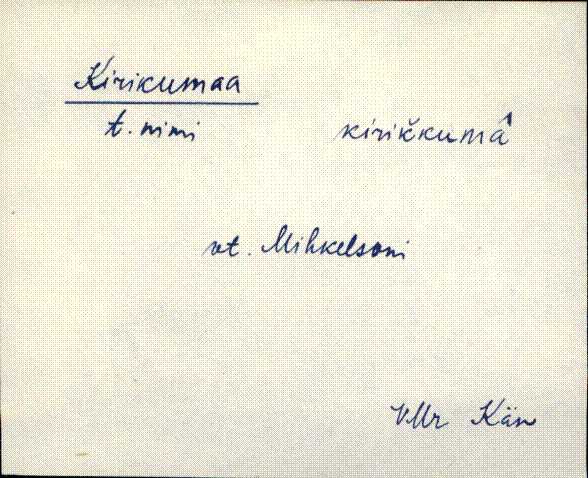 Kirikumaa
t. nimi kirik̆kumâ
vt. Mihkelsoni
VMr Kän